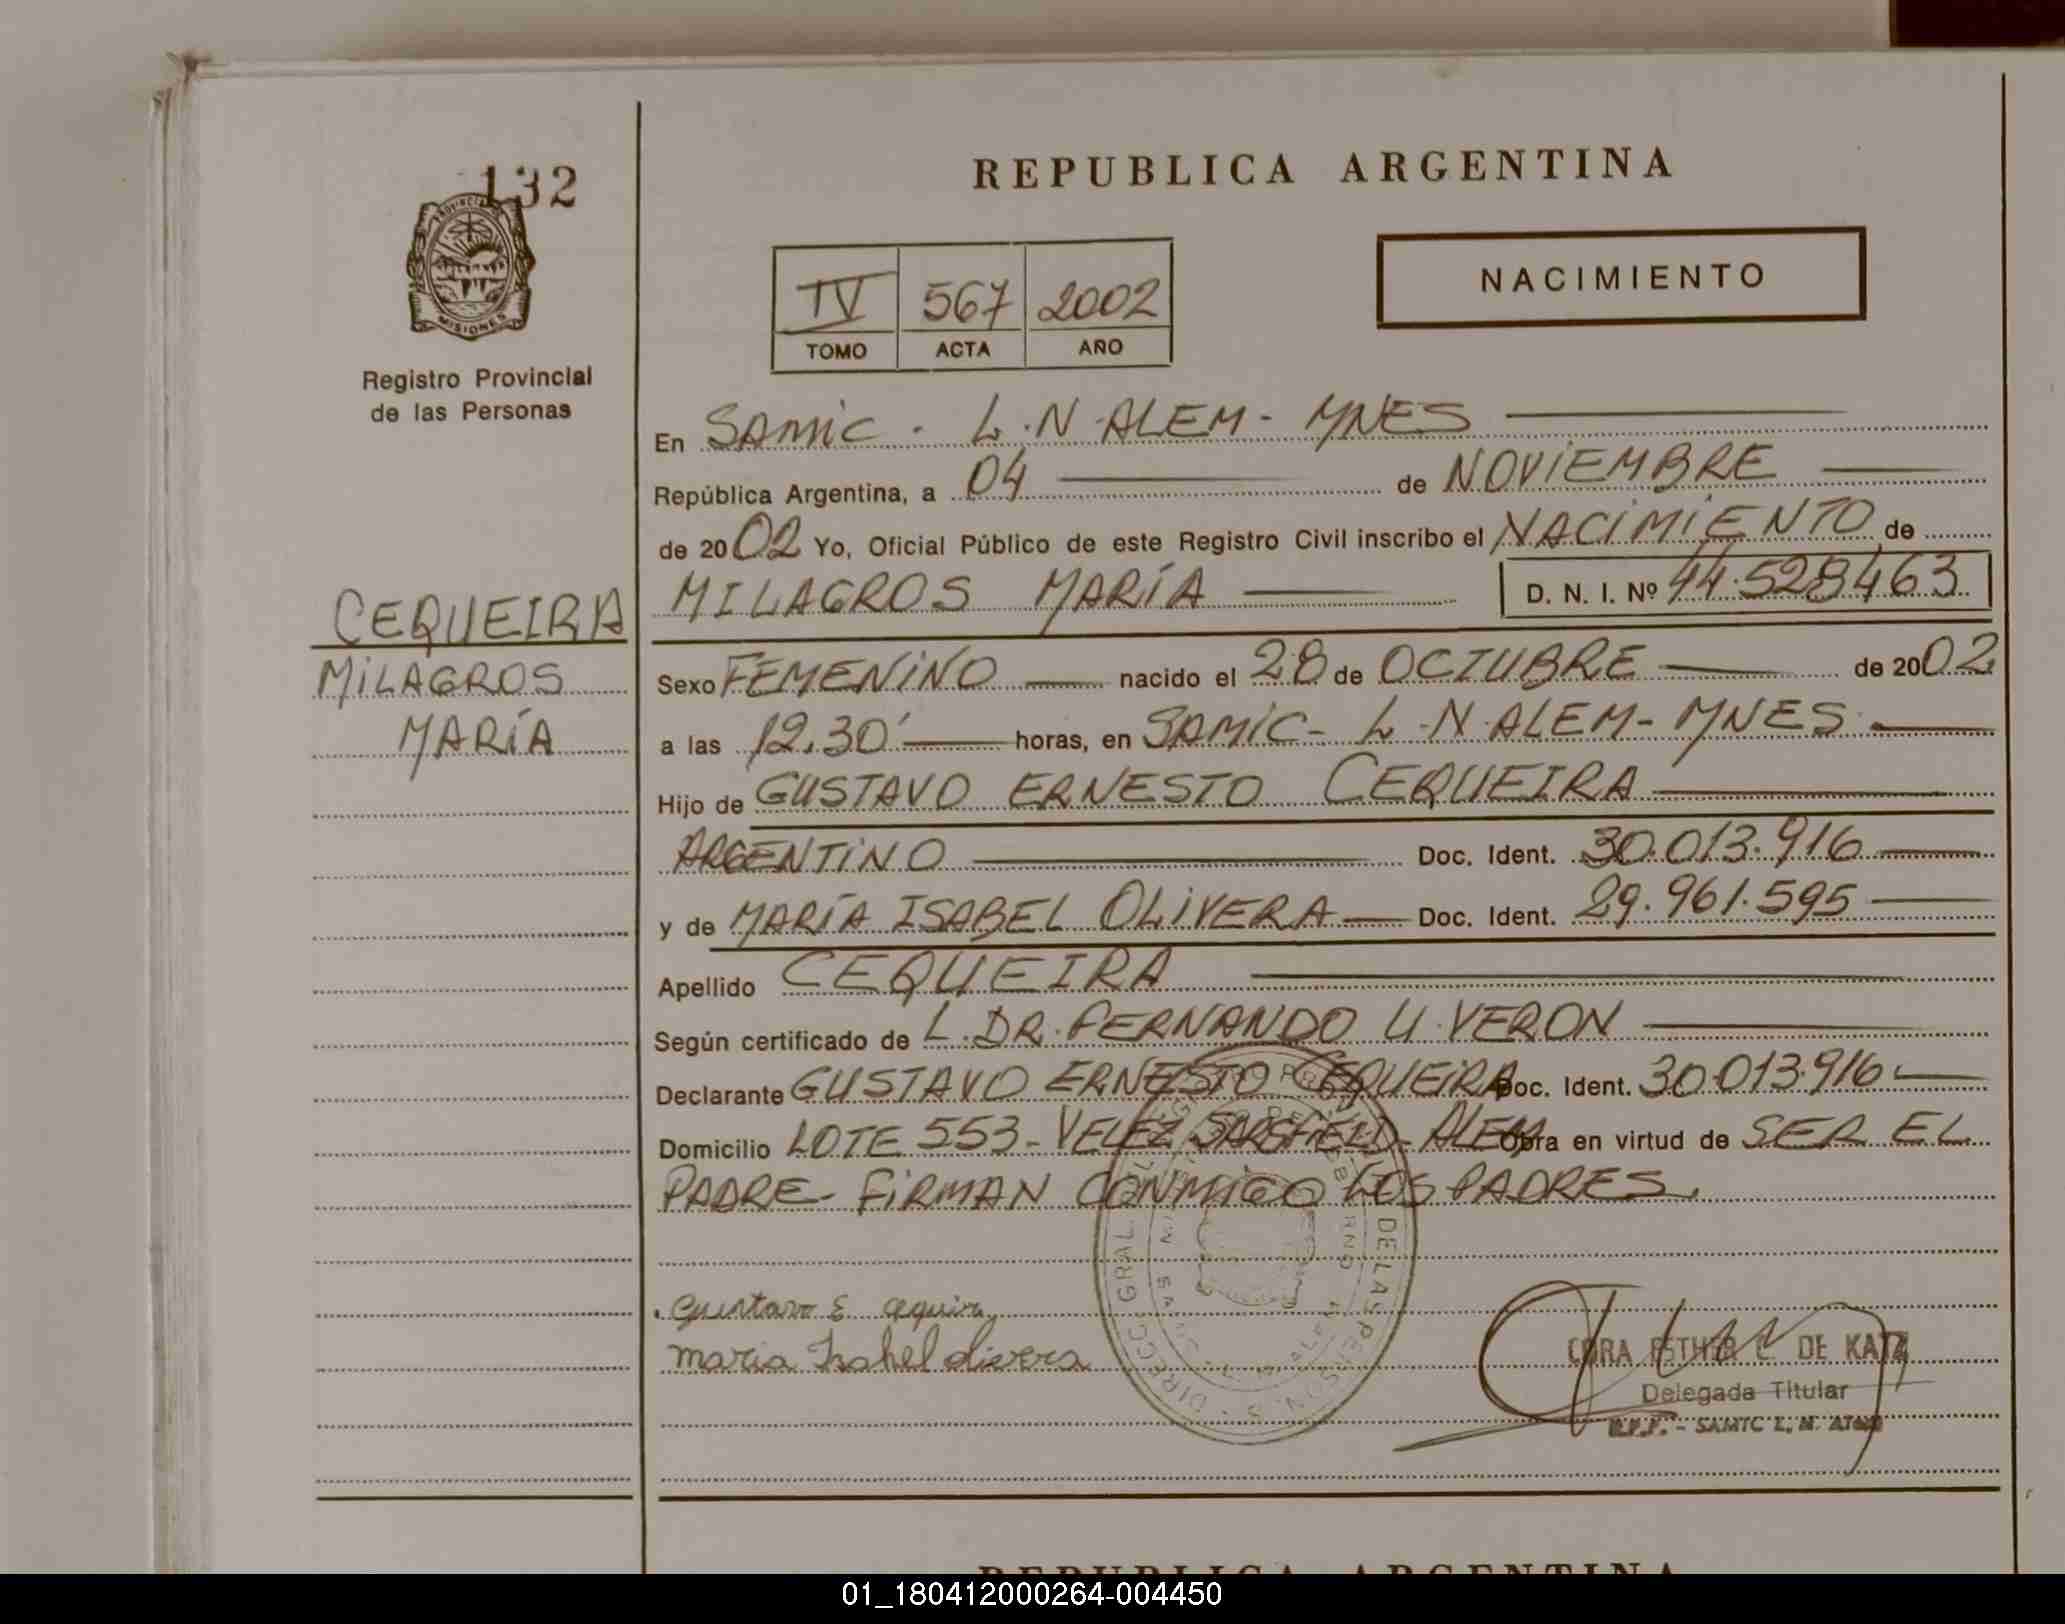 132
PROVINCIA DE
MISIONES
Registro Provincial
de las Personas
REPUBLICA ARGENTINA
NACIMIENTO
IV 567 2002
TOMO ACTA AÑO
En SAMIC. L.N ALEM - MNES
República Argentina, a 04 de NOVIEMBRE
de 2002 Yo, Oficial Público de este Registro Civil inscribo el NACIMIENTO de
MILAGROS MARÍA D. N. I. Nº 44.528463
CEQUEIRA
MILAGROS
MARÍA
Sexo FEMENINO nacido el 28 de OCTUBRE de 2002
a las 12.30' horas, en SAMIC - L.N. ALEM - MNES
Hijo de GUSTAVO ERNESTO CEQUEIRA
ARGENTINO Doc. Ident. 30.013.916
y de MARÍA ISABEL OLIVERA Doc. Ident. 29.961.595
Apellido CEQUEIRA
Según certificado de L. DR. FERNANDO U. VERON
Declarante GUSTAVO ERNESTO CEQUEIRA Doc. Ident. 30.013.916
Domicilio LOTE 553 - VELEZ SARSFIELD - ALEM Obra en virtud de SER EL
PADRE - FIRMAN CONMIGO LOS PADRES.
DIRECC. GRAL. DE LAS PERSON
Gustavo E cequira
maria Isabel olivera
CORA ESTHER C. DE KATZ
Delegada Titular
SAMIC L. N. ALEM
REPUBLICA ARGENTINA
01_180412000264-004450